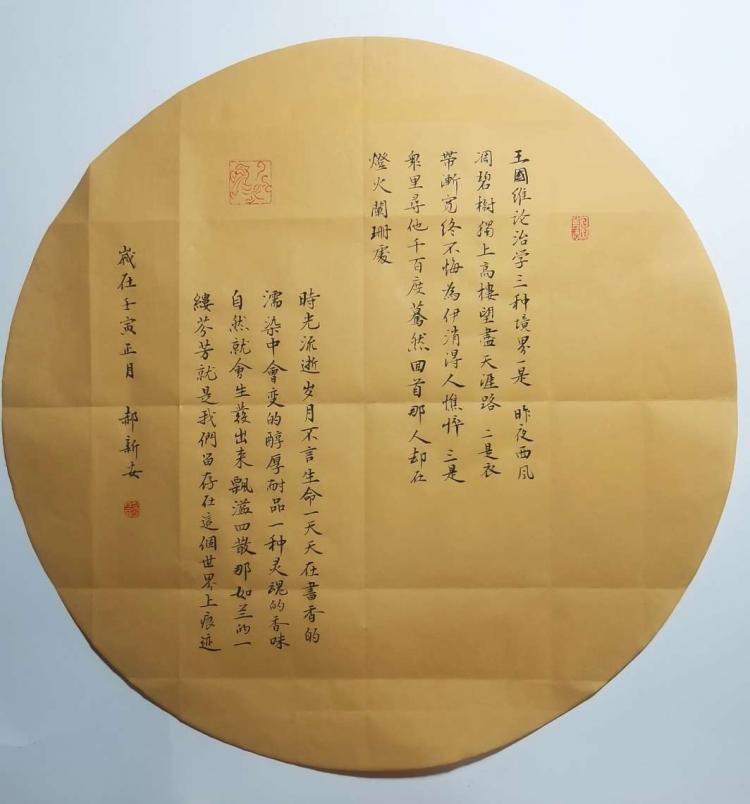 王國维论治学三种境界一是 昨夜西风
凋碧樹獨上高樓望盡天涯路 二是衣
带漸宽终不悔為伊消得人憔悴 三是
衆里尋他千百度驀然回首那人却在
燈火闌珊處
時光流逝岁月不言生命一天天在書香的
濡染中會变的醇厚耐品一种灵魂的香味
自然就會生發出来飘溢四散那如兰的一
缕芬芳就是我們留存在這個世界上痕迹
歲在壬寅正月 郝新安